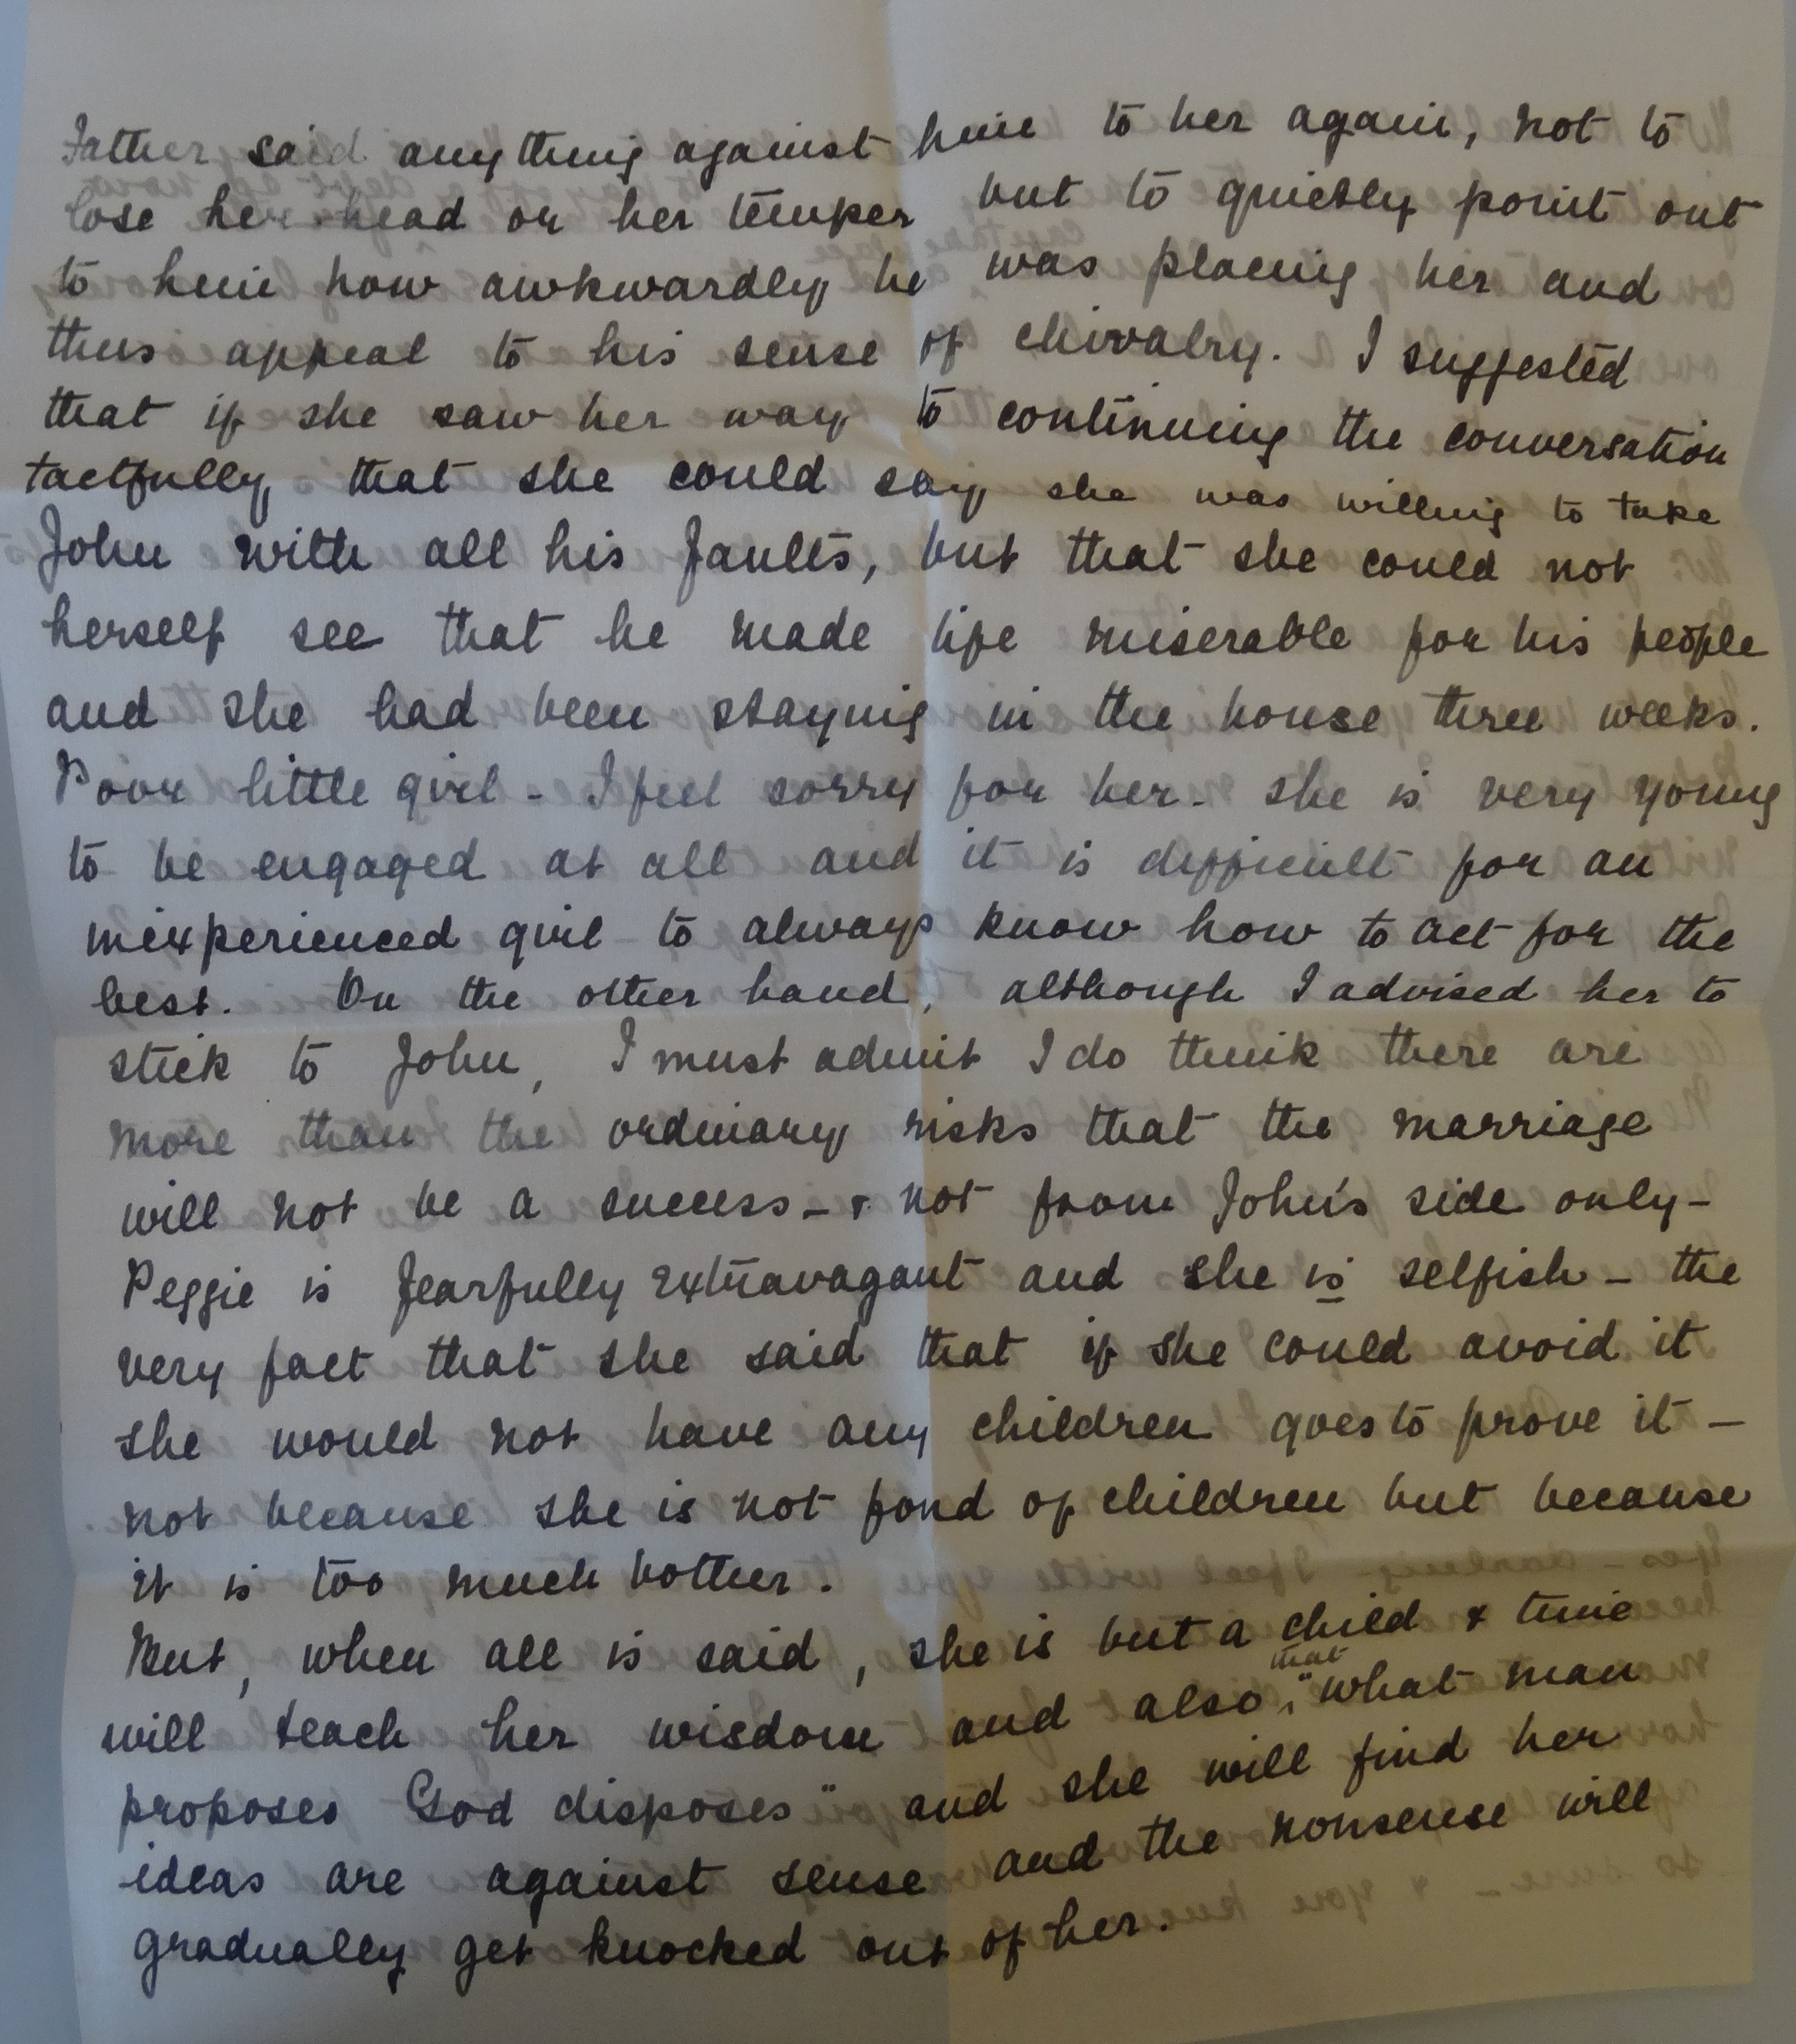 Father said anything against him to her again, not to
lose her head or her temper but to quietly point out
to him how awkwardly he was placing her and
thus appeal to his sense of chivalry. I suggested
that if she saw her way to continuing the conversation
tactfully, that she could say she was willing to take
John with all his faults, but that she could not
herself see that he made life miserable for his people
and she had been staying in the house three weeks.
Poor little girl - I feel sorry for her - she is very young
to be engaged at all and it is difficult for an
inexperienced girl to always know how to act for the
best. On the other hand, although I advised her to
stick to John, I must admit I do think there are
more than the ordinary risks that the marriage
will not be a success - & not from John's side only -
Peggie is fearfully extravagant and she is selfish - the
very fact that she said that if she could avoid it
she would not have any children goes to prove it -
not because she is not fond of children but because
it is too much bother.
But, when all is said, she is but a child & time
will teach her wisdom and also, that "what man
proposes God disposes" and she will find her
ideas are against sense and the nonsense will
gradually get knocked out of her.